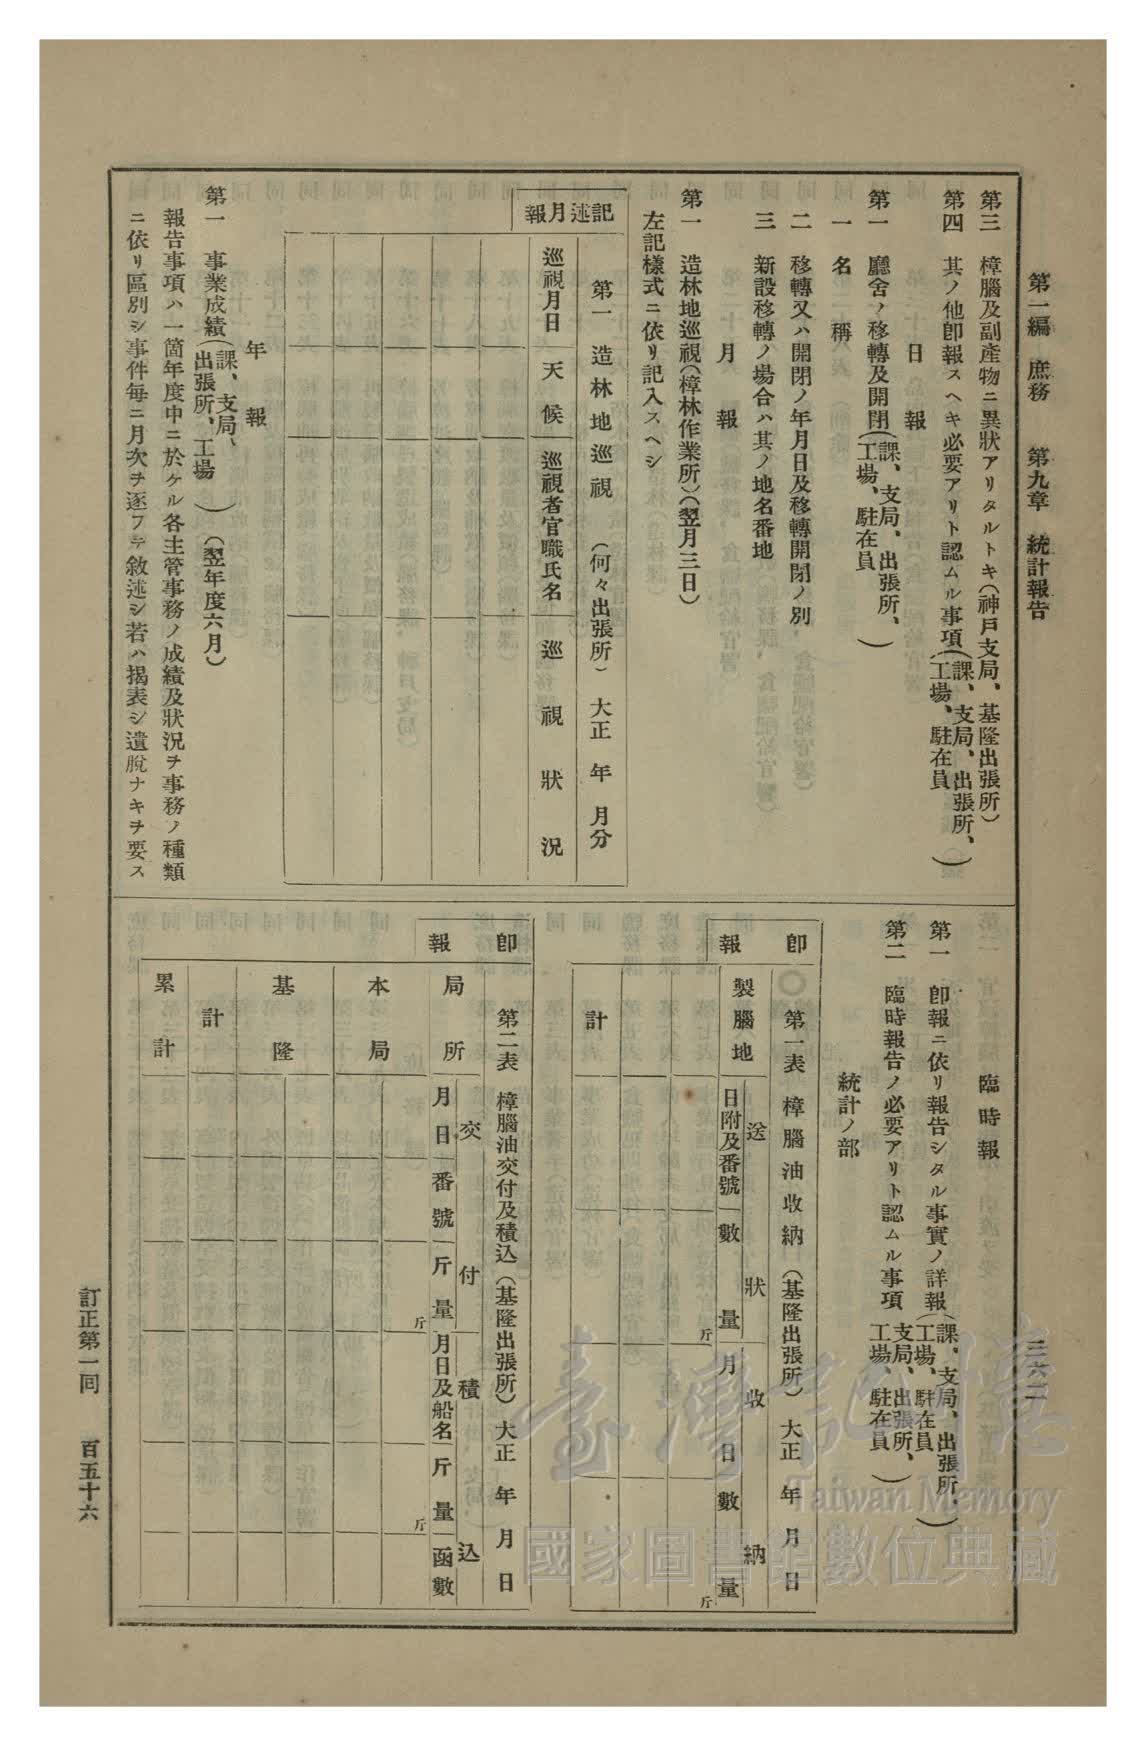 第一編　庶務　　第九章　統計報告　　三六二
第三　樟腦及副産物ニ異狀アリタルトキ（神戸支局、基隆出張所）
第四　其ノ他卽報スヘキ必要アリト認ムル事項（課、支局、出張所、工場、駐在員）
日　報
第一　廳舍ノ移轉及開閉（課、支局、出張所、工場、駐在員）
一　名　稱
二　移轉又ハ開閉ノ年月日及移轉開閉ノ別
三　新設移轉ノ場合ハ其ノ地名番地
月　報
第一　造林地巡視（樟林作業所）（翌月三日）
左記樣式ニ依リ記入スヘシ
記述月報
第一　造林地巡視　（何々出張所）　大正　年　月分
巡視月日　天候　巡視者官職氏名　巡視狀況
年　報
第一　事業成績（課、支局、出張所、工場）（翌年度六月）
報告事項ハ一箇年度中ニ於ケル各主管事務ノ成績及狀況ヲ事務ノ種類
ニ依リ區別シ事件每ニ月次ヲ逐フテ敘述シ若ハ揭表シ遺脫ナキヲ要ス
臨時報
第一　卽報ニ依リ報告シタル事實ノ詳報（課、支局、出張所、工場、駐在員）
第二　臨時報告ノ必要アリト認ムル事項（課、支局、出張所、工場、駐在員）
統計ノ部
卽報
第一表　樟腦油收納　（基隆出張所）　大正　年　月　日
製腦地　送狀　收納
日附及番號　數量　月日　數量
斤　斤
計
卽報
第二表　樟腦油交付及積込（基隆出張所）大正　年　月　日
局所　交付　積込
月日　番號　斤量　月日及船名　斤量　函數
斤　斤
本局
基隆
計
累計
訂正第一回　百五十六
臺灣記憶
Taiwan Memory
國家圖書館數位典藏